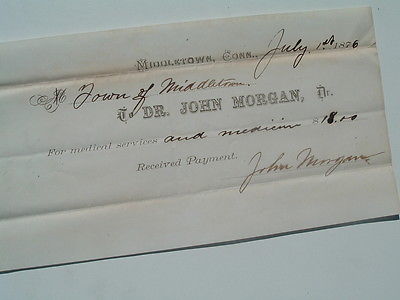 MIDDLETOWN, CONN., July 1st 1876
M Town of Middletown.
To DR. JOHN MORGAN, Dr.
For medical services and medicine $18.00
Received Payment.
John Morgan